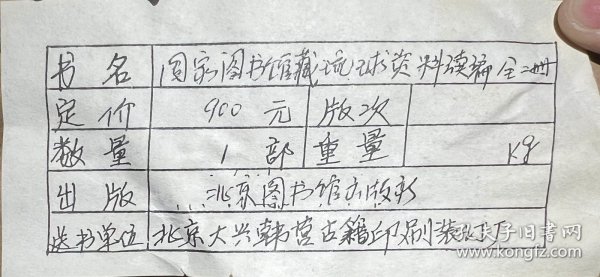 书名 国家图书馆藏琉球资料续编 全二册
定价 900元 版次
数量 1部 重量 kg
出版 北京图书馆出版社
送书单位 北京大兴韩营古籍印刷装订厂
孔夫子旧书网